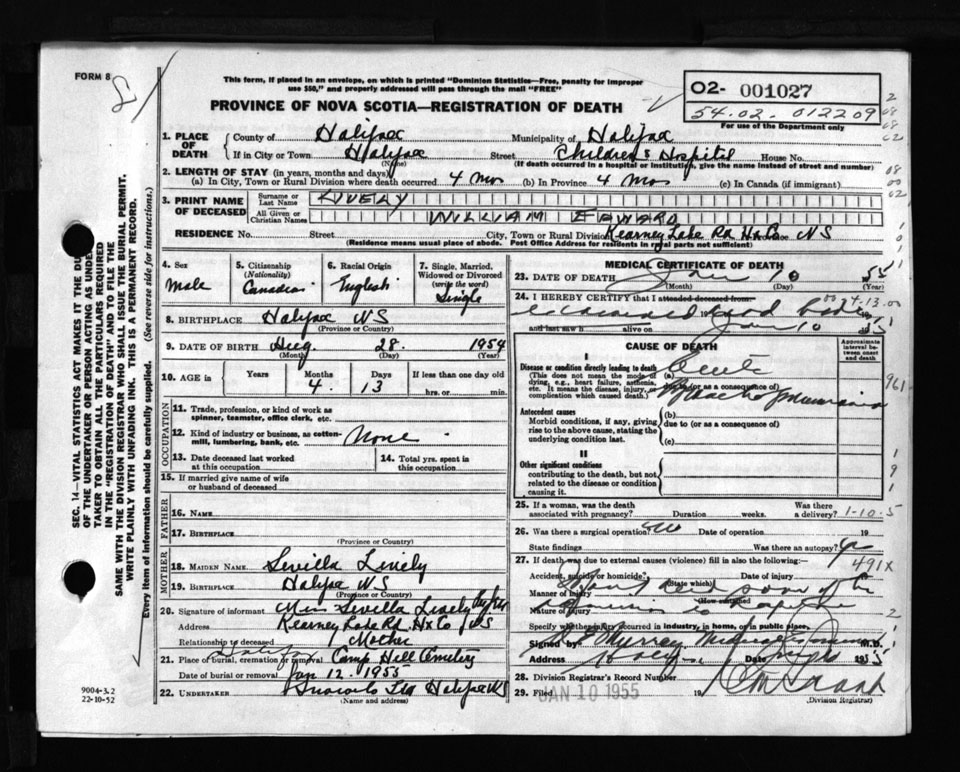 FORM 8
This form, if placed in an envelope, on which is printed "Dominion Statistics—Free, penalty for improper
use $50," and properly addressed will pass through the mail "FREE"
PROVINCE OF NOVA SCOTIA—REGISTRATION OF DEATH
O2- 001027
54.02. 012209
For use of the Department only
1. PLACE OF DEATH
County of Halifax Municipality of Halifax
If in City or Town Halifax Street Children's Hospital House No.
(Name) (If death occurred in a hospital or institution, give the name instead of street and number)
2. LENGTH OF STAY (in years, months and days)
(a) In City, Town or Rural Division where death occurred 4 Mos (b) In Province 4 Mos (c) In Canada (if immigrant)
3. PRINT NAME OF DECEASED
Surname or Last Name LIVELY
All Given or Christian Names WILLIAM EDWARD
RESIDENCE No. Street City, Town or Rural Division Kearney Lake Rd Hx Co Province NS
(Residence means usual place of abode. Post Office Address for residents in rural parts not sufficient)
4. Sex
Male
5. Citizenship (Nationality)
Canadian
6. Racial Origin
English
7. Single, Married, Widowed or Divorced (write the word)
Single
8. BIRTHPLACE Halifax NS
(Province or Country)
9. DATE OF BIRTH Aug. 28. 1954
(Month) (Day) (Year)
10. AGE in Years Months 4. Days 13 If less than one day old
hrs. or min.
OCCUPATION
11. Trade, profession, or kind of work as
spinner, teamster, office clerk, etc.
12. Kind of industry or business, as cotton-
mill, lumbering, bank, etc. None
13. Date deceased last worked
at this occupation
14. Total yrs. spent in
this occupation
15. If married give name of wife
or husband of deceased
FATHER
16. NAME
17. BIRTHPLACE
(Province or Country)
MOTHER
18. MAIDEN NAME Sevilla Lively
19. BIRTHPLACE Halifax NS
(Province or Country)
20. Signature of informant Miss Sevilla Lively
Address Kearney Lake Rd. Hx Co NS
Relationship to deceased Mother
21. Place of burial, cremation or removal Halifax Camp Hill Cemetery
Date of burial or removal Jan 12. 1955
22. UNDERTAKER Halifax NS
(Name and address)
MEDICAL CERTIFICATE OF DEATH
23. DATE OF DEATH Jan 10 55
(Month) (Day) (Year)
24. I HEREBY CERTIFY that I attended deceased from
examined dead body
and last saw h alive on Jan 10 1955
CAUSE OF DEATH
Approximate interval between onset and death
I
Disease or condition directly leading to death
(This does not mean the mode of
dying, e.g., heart failure, asthenia,
etc. It means the disease, injury, or
complication which caused death.)
(a) Acute
due to (or as a consequence of)
Antecedent causes
Morbid conditions, if any, giving
rise to the above cause, stating the
underlying condition last.
(b)
due to (or as a consequence of)
(c)
II
Other significant conditions
contributing to the death, but not
related to the disease or condition
causing it.
25. If a woman, was the death
associated with pregnancy? Duration weeks. Was there
a delivery? 1-10-5
26. Was there a surgical operation? no Date of operation 19
State findings Was there an autopsy? yes
27. If death was due to external causes (violence) fill in also the following:—
491X
Accident, suicide or homicide? Date of injury
(State which)
Manner of injury
(How sustained)
Nature of injury
Specify whether injury occurred in industry, in home, or in public place.
Signed by Murray Medical Examiner M.D.
Address Date 1955
28. Division Registrar's Record Number
29. Filed JAN 10 1955 19
(Division Registrar)
SEC. 14—VITAL STATISTICS ACT MAKES IT THE DU
OF THE UNDERTAKER OR PERSON ACTING AS UNDER
TAKER TO OBTAIN ALL THE PARTICULARS REQUIRED
IN THE "REGISTRATION OF DEATH" AND TO FILE THE
SAME WITH THE DIVISION REGISTRAR WHO SHALL ISSUE THE BURIAL PERMIT.
WRITE PLAINLY WITH UNFADING INK. THIS IS A PERMANENT RECORD.
Every item of information should be carefully supplied. (See reverse side for instructions.)
9004-3.2
22-10-52